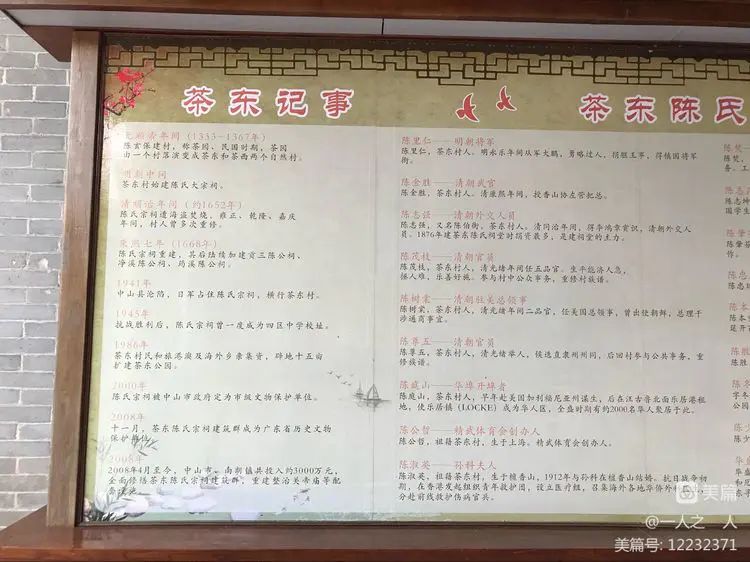 茶东记事
元顺帝年间（1333-1367年）
陈玄保建村，称茶园、民国时期，茶园
由一个村落演变成茶东和茶西两个自然村。
明朝中间
茶东村始建陈氏大宗祠。
清明治年间（约1652年）
陈氏宗祠遭海盗焚烧，雍正、乾隆、嘉庆
年间，村人曾多次重修。
康熙七年（1668年）
陈氏宗祠重建，其后陆续加建贡三陈公祠、
净溪陈公祠、鸬溪陈公祠。
1941年
中山县沦陷，日军占住陈氏宗祠，横行茶东村。
1945年
抗战胜利后，陈氏宗祠曾一度成为四区中学校址。
1986年
茶东村民和旅港澳及海外乡亲集资，辟地十五亩
扩建茶东公园。
2000年
陈氏宗祠被中山市政府定为市级文物保护单位。
2008年
十一月，茶东陈氏宗祠建筑群成为广东省历史文物
保护单位。
2008年4月至今，中山市、南朗镇共投入约3000万元，
全面修缮茶东陈氏宗祠建筑群，重建整治关帝庙等配
茶东陈氏
陈里仁——明朝将军
陈里仁，茶东村人。明永乐年间从军大鹏，勇略过人，捐躯王事，得镇国将军
衔。
陈金胜——清朝武官
陈金胜，茶东村人。清康熙年间，授香山协左营把总。
陈志强——清朝外交人员
陈志强，又名陈伯衡，茶东村人。清同治年间，得华鸿章赏识，清朝外交人
员。1876年建茶东陈氏祠堂时捐资最多，是建祠堂的主力。
陈茂枝——清朝官员
陈茂枝，茶东村人，清光绪年间任五品官。生平能济人急，
保人难，乐善好施。参与村中公众事务，重修村族谱。
陈树棠——清朝驻美总领事
陈树棠，茶东村人，清光绪年间二品官，任美国总领事，曾出使朝鲜，总理干
涉通商事宜。
陈尊五——清朝官员
陈尊五，茶东村人，清光绪举人，候选直隶州州同，后回村参与公共事务，重
修族谱。
陈庭山——华埠开埠者
陈庭山，茶东村人，早年赴美国加利福尼亚州谋生，后在汪古鲁北面乐居港租
地，使乐居镇（LOCKE）成为华人区，全盛时期有约2000名华人聚居于此。
陈公哲——精武体育会创办人
陈公哲，祖籍茶东村，生于上海。精武体育会创办人。
陈淑英——孙科夫人
陈淑英，祖籍茶东村，生于檀香山，1912年与孙科在檀香山结婚。抗日战争初
期，在香港发起组织青年救护团，设立医疗组，召集海外各地华侨
分赴前线救护伤病官兵。
美篇
@一人之一人
美篇号: 12232371